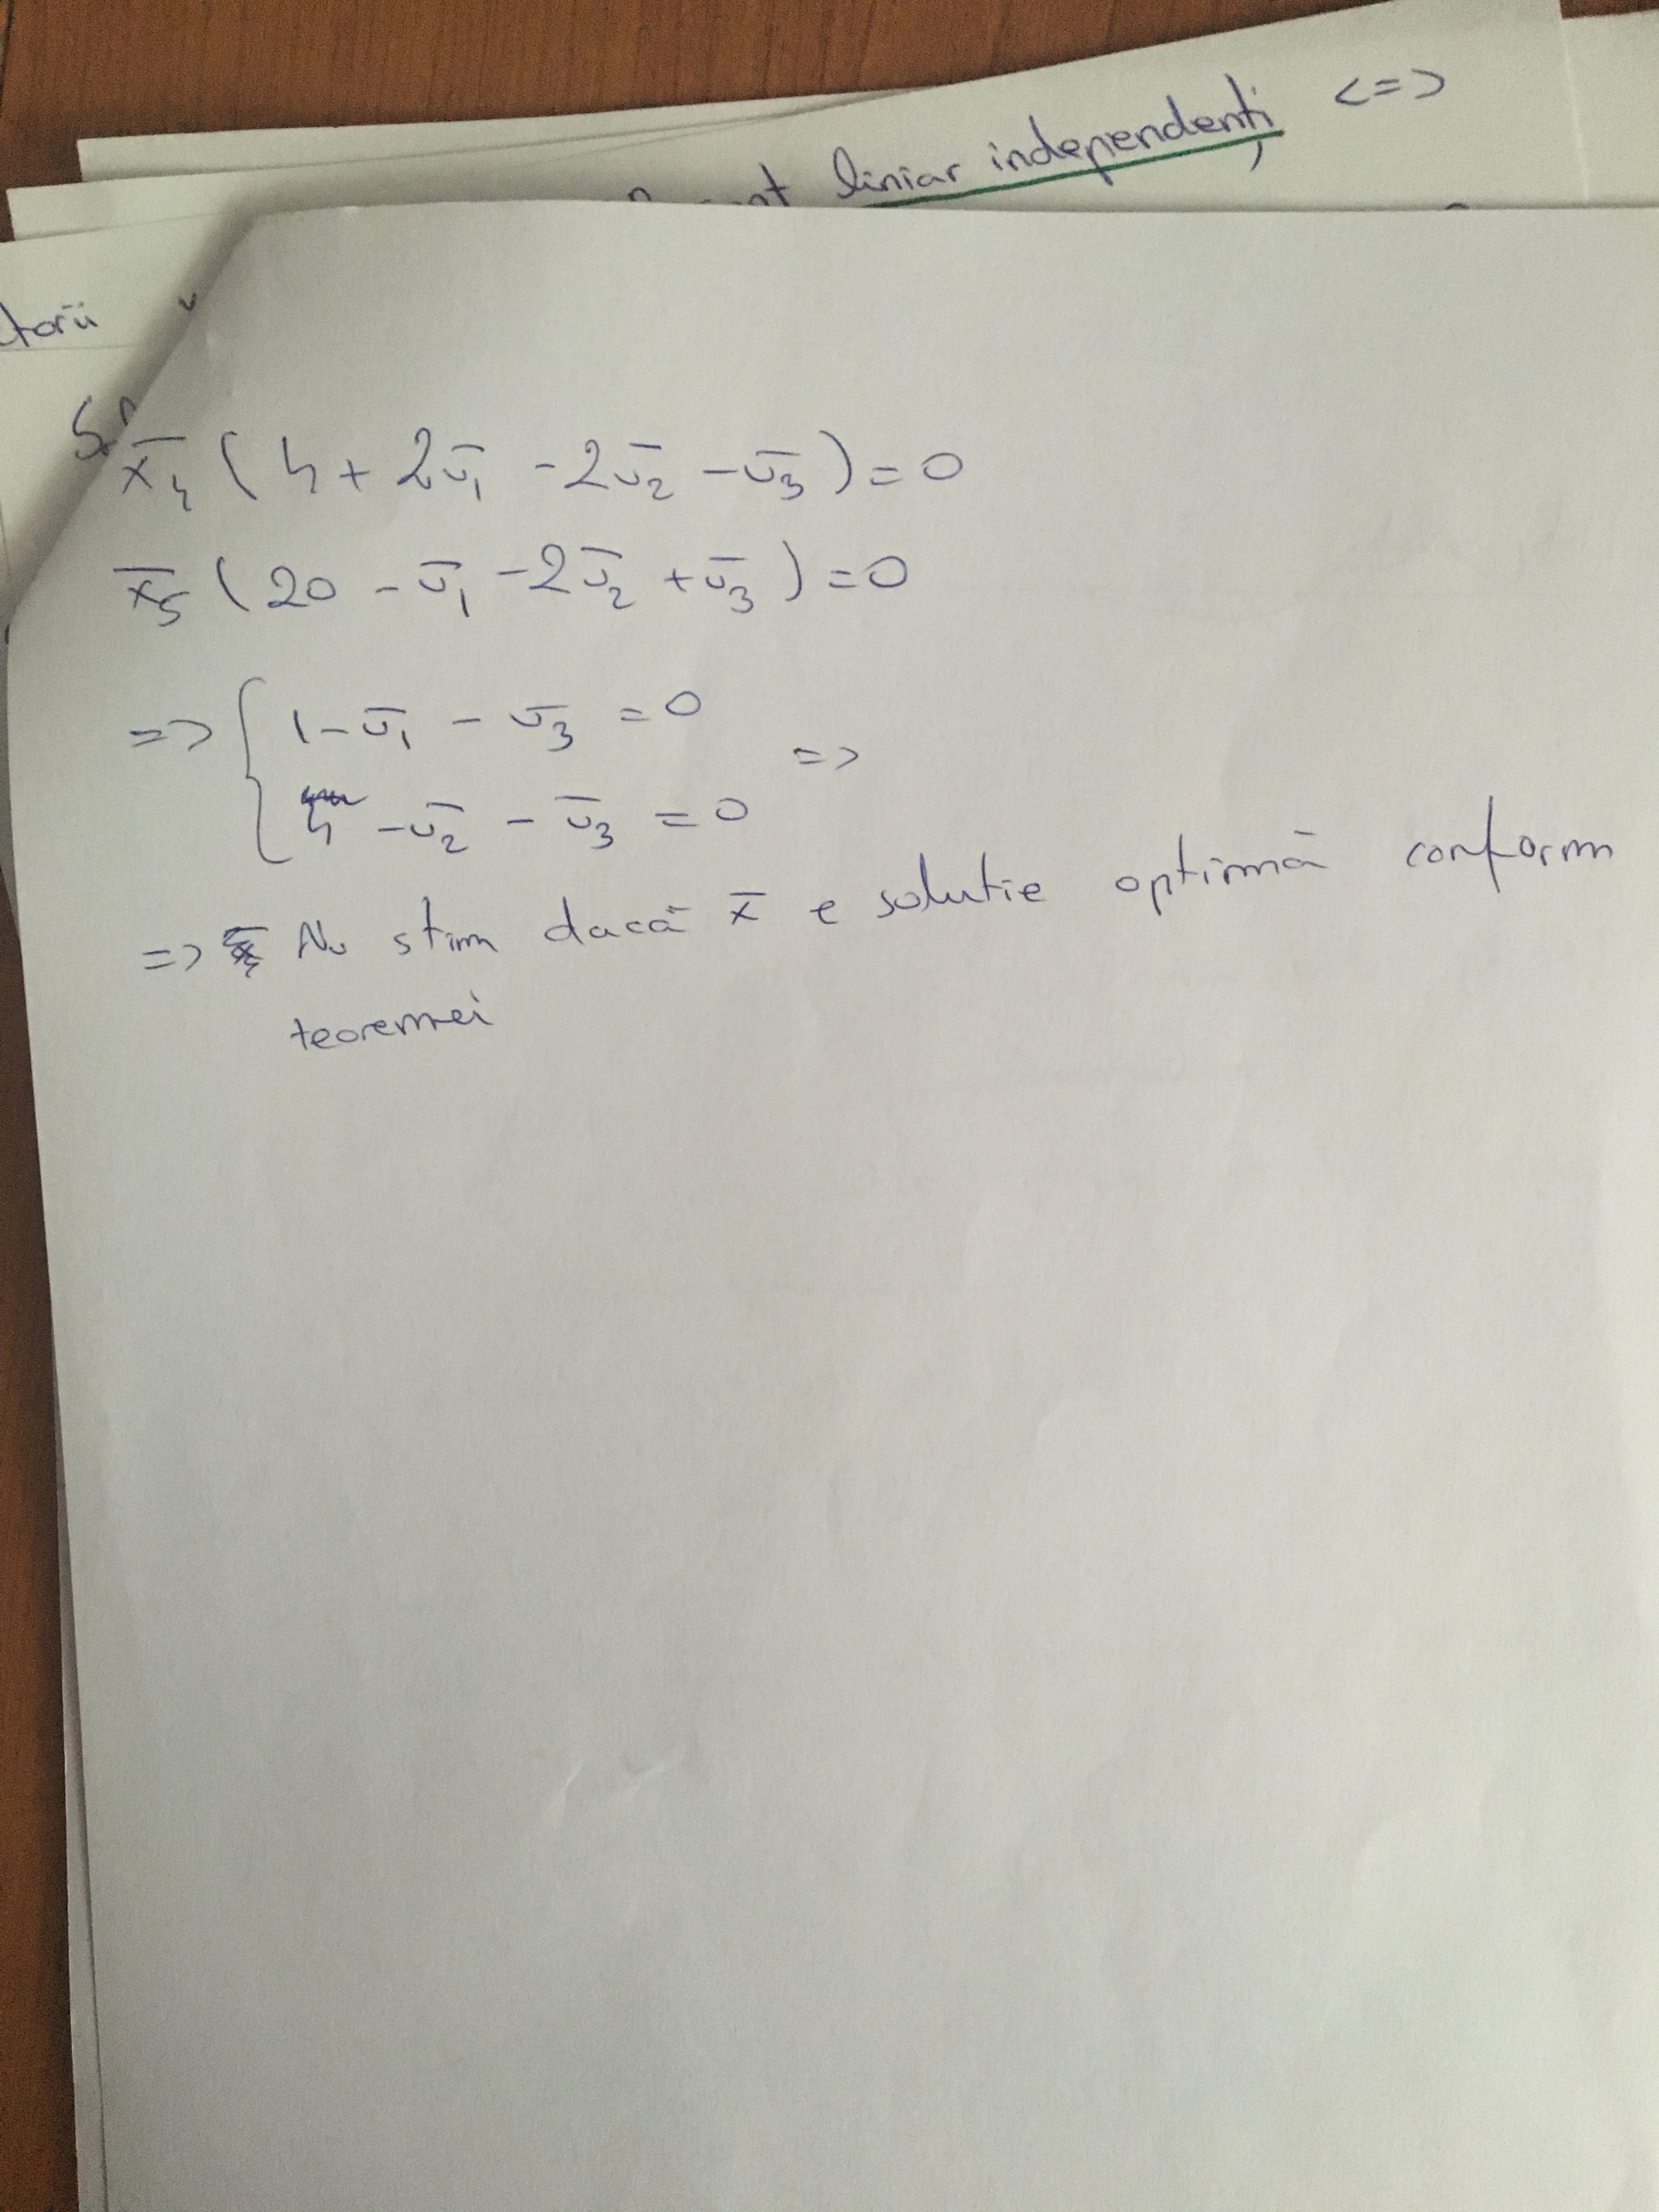 liniar independenți <=>
torii
x̄₄ ( 4 + 2ū₁ - 2ū₂ - ū₃ ) = 0
x̄₅ ( 20 - ū₁ - 2ū₂ + ū₃ ) = 0
=> { 1 - ū₁ - ū₃ = 0
4 - ū₂ - ū₃ = 0 =>
=> Nu stim dacă x̄ e solutie optimă conform
teoremei